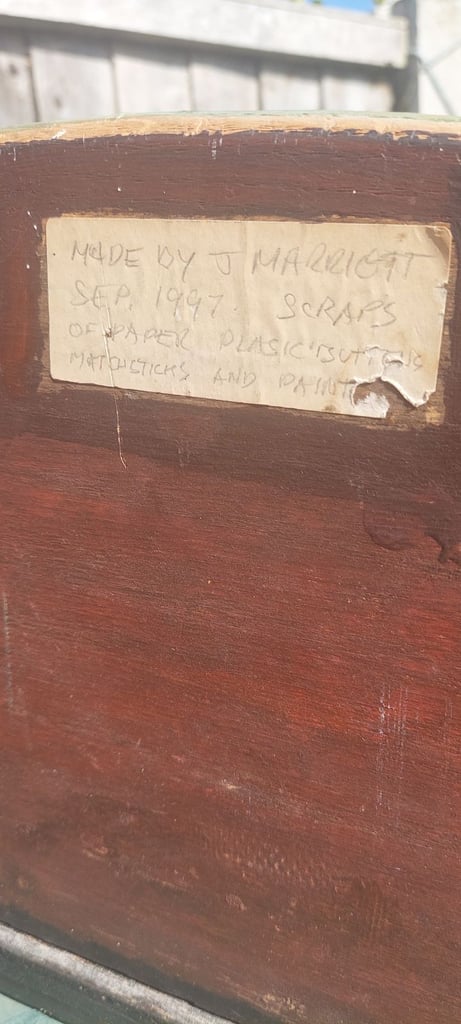 MADE BY J MARRIOTT
SEP. 1997. SCRAPS
OF PAPER PLASIC BUTTONS
MATCHSTICKS AND PAINT